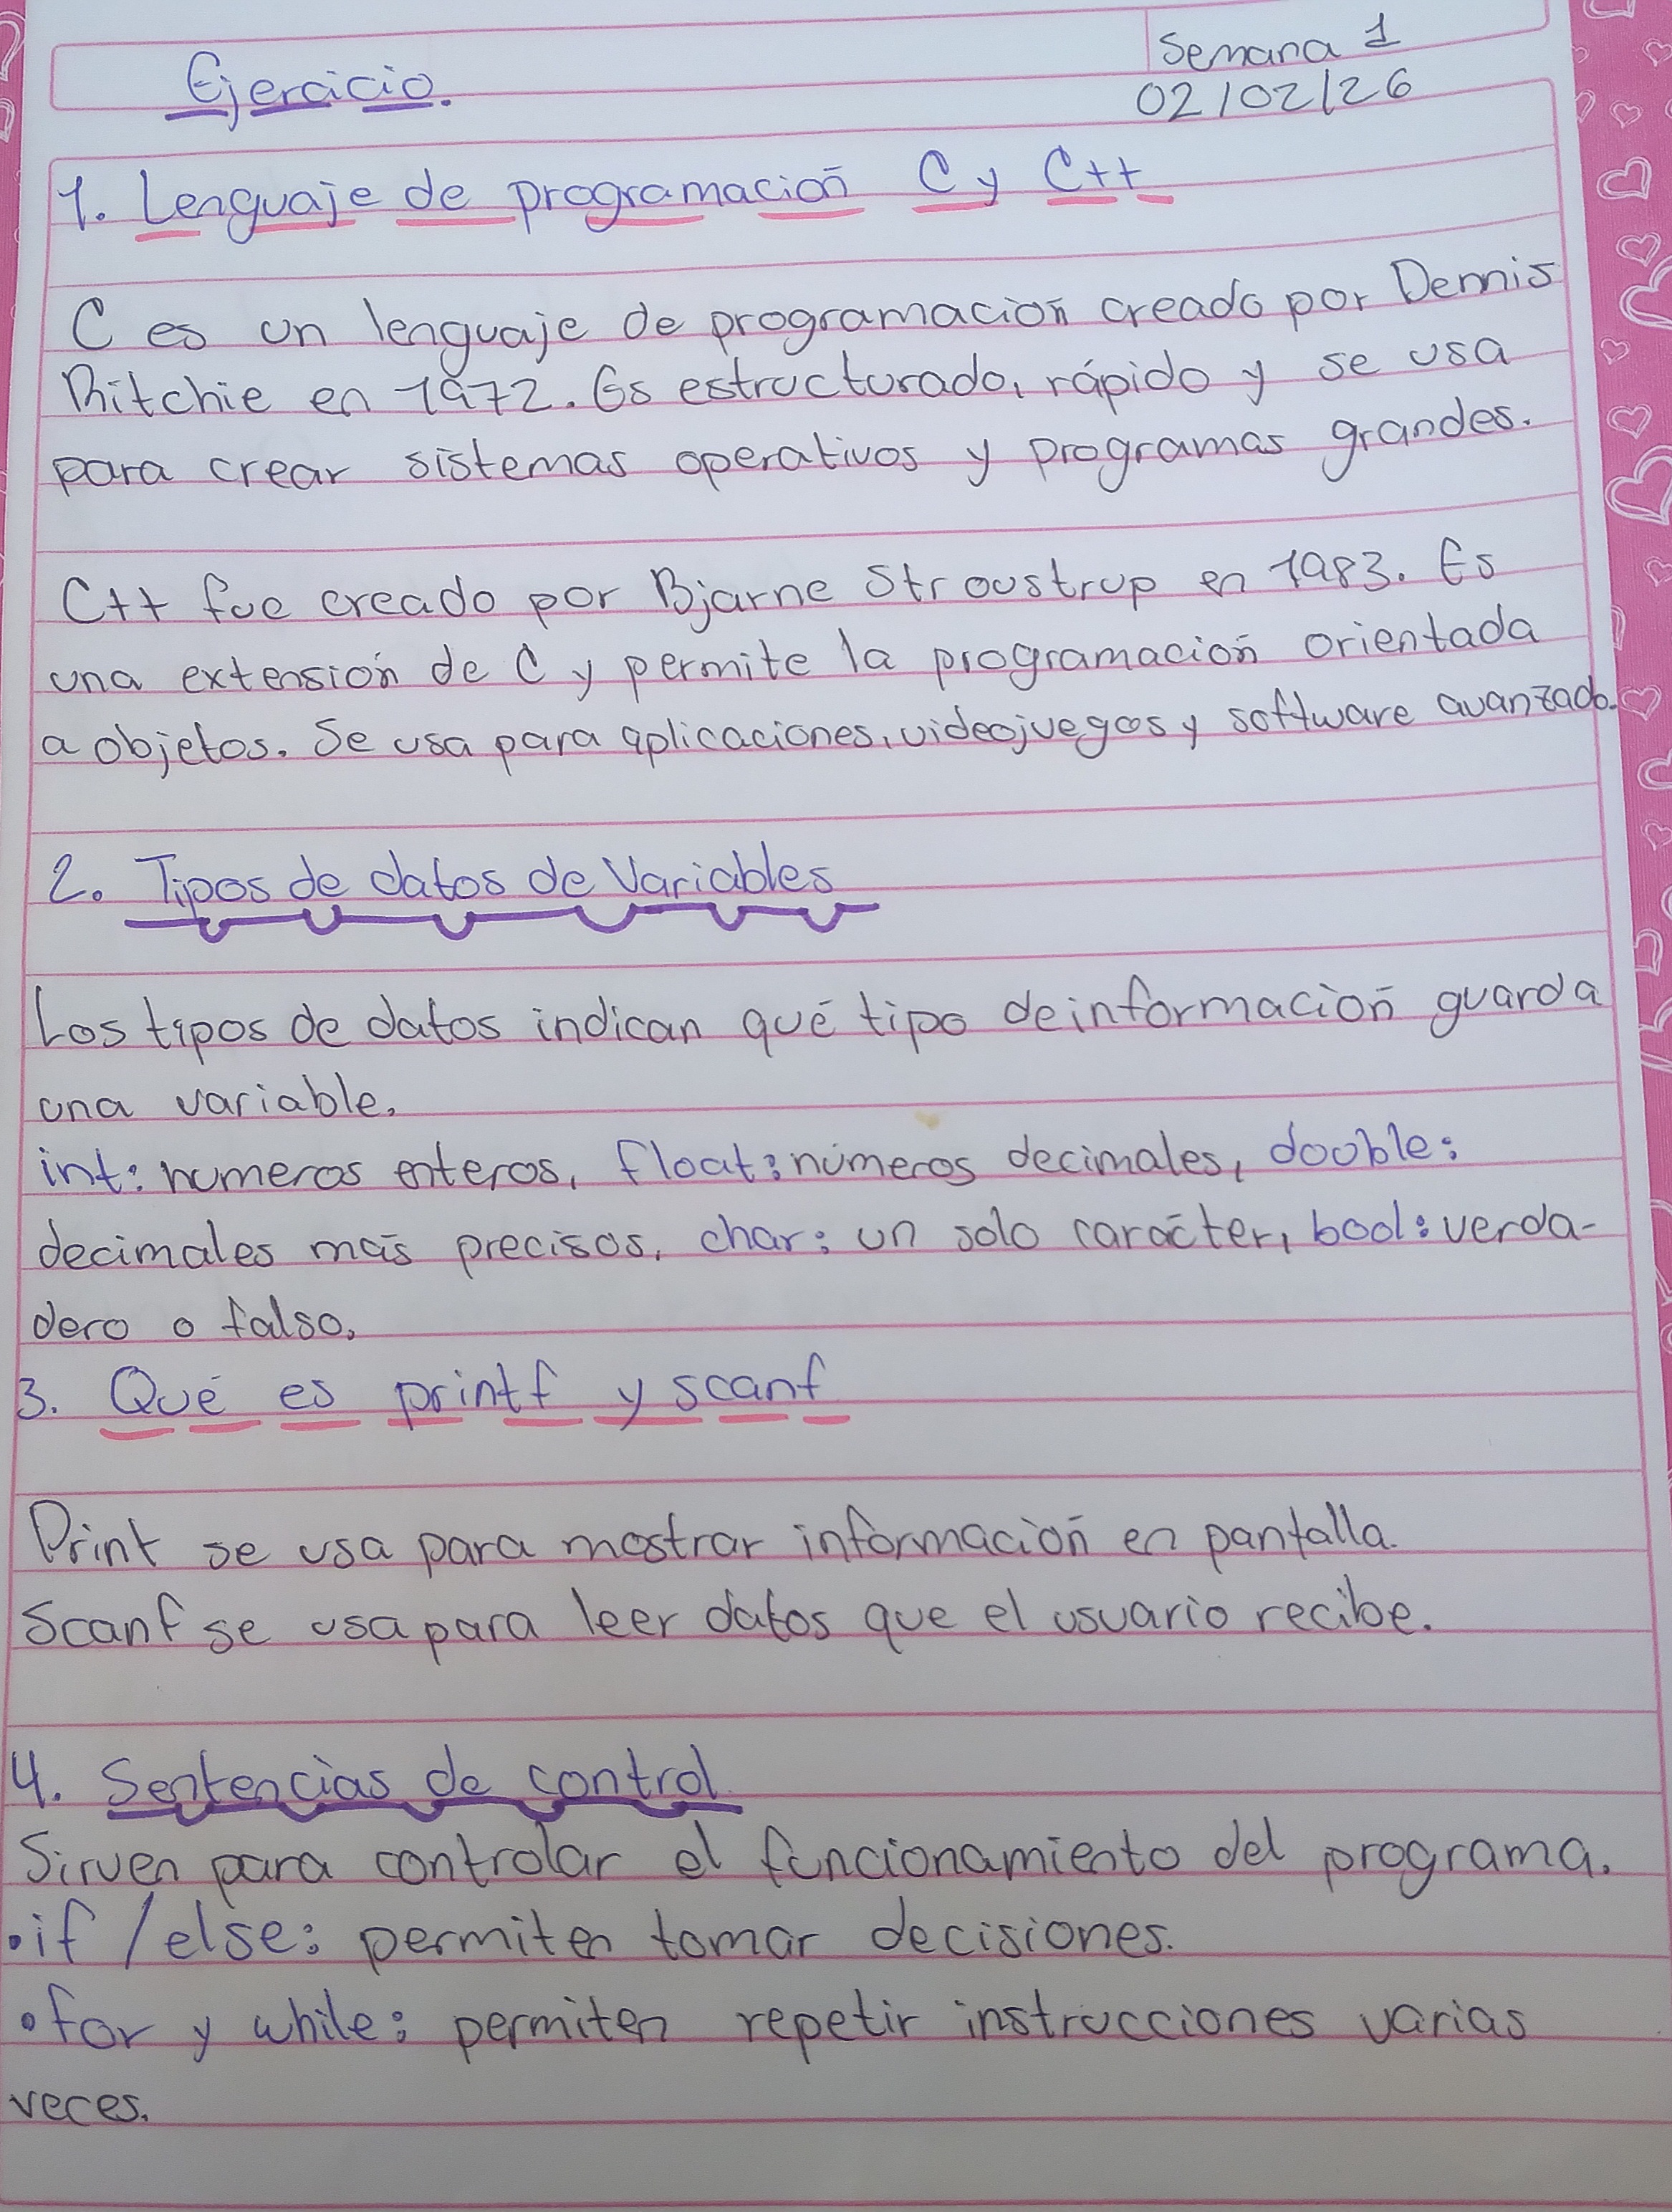 Semana 1
Ejercicio.
02/02/26
1. Lenguaje de programación C y C++
C es un lenguaje de programación creado por Dennis
Ritchie en 1972. Es estructurado, rápido y se usa
para crear sistemas operativos y programas grandes.
C++ fue creado por Bjarne Stroustrup en 1983. Es
una extensión de C y permite la programación orientada
a objetos. Se usa para aplicaciones, videojuegos y software avanzado.
2. Tipos de datos de Variables
Los tipos de datos indican qué tipo de información guarda
una variable.
int: numeros enteros, float: números decimales, double:
decimales más precisos, char: un solo carácter, bool: verda-
dero o falso.
3. Qué es printf y scanf
Print se usa para mostrar información en pantalla.
Scanf se usa para leer datos que el usuario recibe.
4. Sentencias de control.
Sirven para controlar el funcionamiento del programa.
• if / else: permiten tomar decisiones.
• for y while: permiten repetir instrucciones varias
veces.